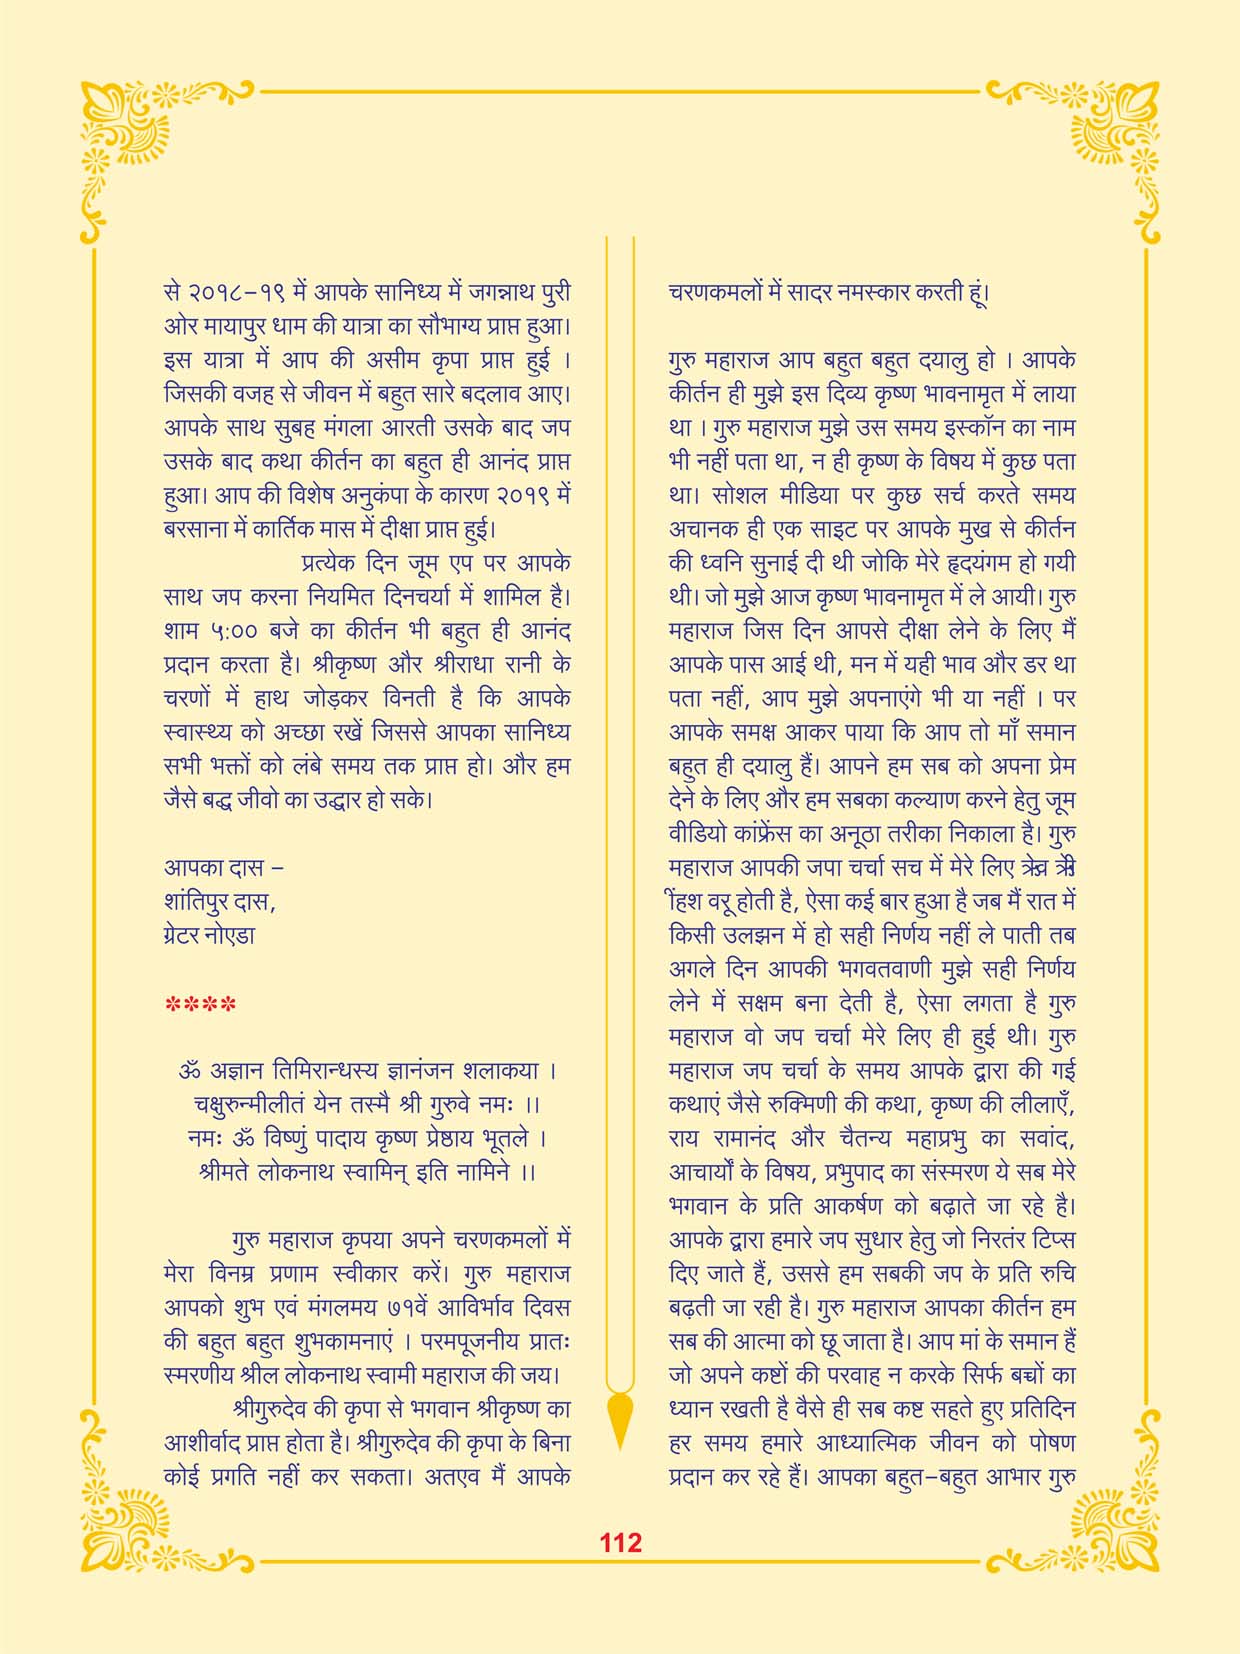 से २०१८-१९ में आपके सानिध्य में जगन्नाथ पुरी
ओर मायापुर धाम की यात्रा का सौभाग्य प्राप्त हुआ।
इस यात्रा में आप की असीम कृपा प्राप्त हुई ।
जिसकी वजह से जीवन में बहुत सारे बदलाव आए।
आपके साथ सुबह मंगला आरती उसके बाद जप
उसके बाद कथा कीर्तन का बहुत ही आनंद प्राप्त
हुआ। आप की विशेष अनुकंपा के कारण २०१९ में
बरसाना में कार्तिक मास में दीक्षा प्राप्त हुई।
प्रत्येक दिन जूम एप पर आपके
साथ जप करना नियमित दिनचर्या में शामिल है।
शाम ५:०० बजे का कीर्तन भी बहुत ही आनंद
प्रदान करता है। श्रीकृष्ण और श्रीराधा रानी के
चरणों में हाथ जोड़कर विनती है कि आपके
स्वास्थ्य को अच्छा रखें जिससे आपका सानिध्य
सभी भक्तों को लंबे समय तक प्राप्त हो। और हम
जैसे बद्ध जीवो का उद्धार हो सके।
आपका दास -
शांतिपुर दास,
ग्रेटर नोएडा
****
ॐ अज्ञान तिमिरान्धस्य ज्ञानंजन शलाकया ।
चक्षुरुन्मीलीतं येन तस्मै श्री गुरुवे नमः ।।
नमः ॐ विष्णुं पादाय कृष्ण प्रेष्ठाय भूतले ।
श्रीमते लोकनाथ स्वामिन् इति नामिने ।।
गुरु महाराज कृपया अपने चरणकमलों में
मेरा विनम्र प्रणाम स्वीकार करें। गुरु महाराज
आपको शुभ एवं मंगलमय ७१वें आविर्भाव दिवस
की बहुत बहुत शुभकामनाएं । परमपूजनीय प्रातः
स्मरणीय श्रील लोकनाथ स्वामी महाराज की जय।
श्रीगुरुदेव की कृपा से भगवान श्रीकृष्ण का
आशीर्वाद प्राप्त होता है। श्रीगुरुदेव की कृपा के बिना
कोई प्रगति नहीं कर सकता। अतएव मैं आपके
चरणकमलों में सादर नमस्कार करती हूं।
गुरु महाराज आप बहुत बहुत दयालु हो । आपके
कीर्तन ही मुझे इस दिव्य कृष्ण भावनामृत में लाया
था । गुरु महाराज मुझे उस समय इस्कॉन का नाम
भी नहीं पता था, न ही कृष्ण के विषय में कुछ पता
था। सोशल मीडिया पर कुछ सर्च करते समय
अचानक ही एक साइट पर आपके मुख से कीर्तन
की ध्वनि सुनाई दी थी जोकि मेरे हृदयंगम हो गयी
थी। जो मुझे आज कृष्ण भावनामृत में ले आयी। गुरु
महाराज जिस दिन आपसे दीक्षा लेने के लिए मैं
आपके पास आई थी, मन में यही भाव और डर था
पता नहीं, आप मुझे अपनाएंगे भी या नहीं । पर
आपके समक्ष आकर पाया कि आप तो माँ समान
बहुत ही दयालु हैं। आपने हम सब को अपना प्रेम
देने के लिए और हम सबका कल्याण करने हेतु जूम
वीडियो कांफ्रेंस का अनूठा तरीका निकाला है। गुरु
महाराज आपकी जपा चर्चा सच में मेरे लिए
वरू होती है, ऐसा कई बार हुआ है जब मैं रात में
किसी उलझन में हो सही निर्णय नहीं ले पाती तब
अगले दिन आपकी भगवतवाणी मुझे सही निर्णय
लेने में सक्षम बना देती है, ऐसा लगता है गुरु
महाराज वो जप चर्चा मेरे लिए ही हुई थी। गुरु
महाराज जप चर्चा के समय आपके द्वारा की गई
कथाएं जैसे रुक्मिणी की कथा, कृष्ण की लीलाएँ,
राय रामानंद और चैतन्य महाप्रभु का सवांद,
आचार्यों के विषय, प्रभुपाद का संस्मरण ये सब मेरे
भगवान के प्रति आकर्षण को बढ़ाते जा रहे है।
आपके द्वारा हमारे जप सुधार हेतु जो निरतंर टिप्स
दिए जाते हैं, उससे हम सबकी जप के प्रति रुचि
बढ़ती जा रही है। गुरु महाराज आपका कीर्तन हम
सब की आत्मा को छू जाता है। आप मां के समान हैं
जो अपने कष्टों की परवाह न करके सिर्फ बच्चों का
ध्यान रखती है वैसे ही सब कष्ट सहते हुए प्रतिदिन
हर समय हमारे आध्यात्मिक जीवन को पोषण
प्रदान कर रहे हैं। आपका बहुत-बहुत आभार गुरु
112